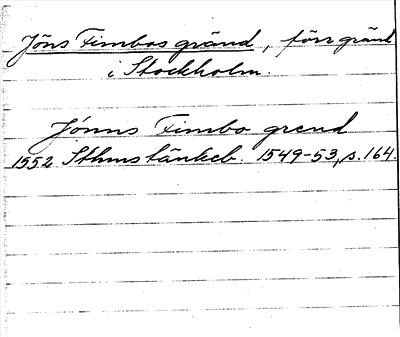 Jöns Timbos gränd, förr gränd
i Stockholm.
Jónns Timbo grend
1552 Sthms tänkeb. 1549-53, s. 164.